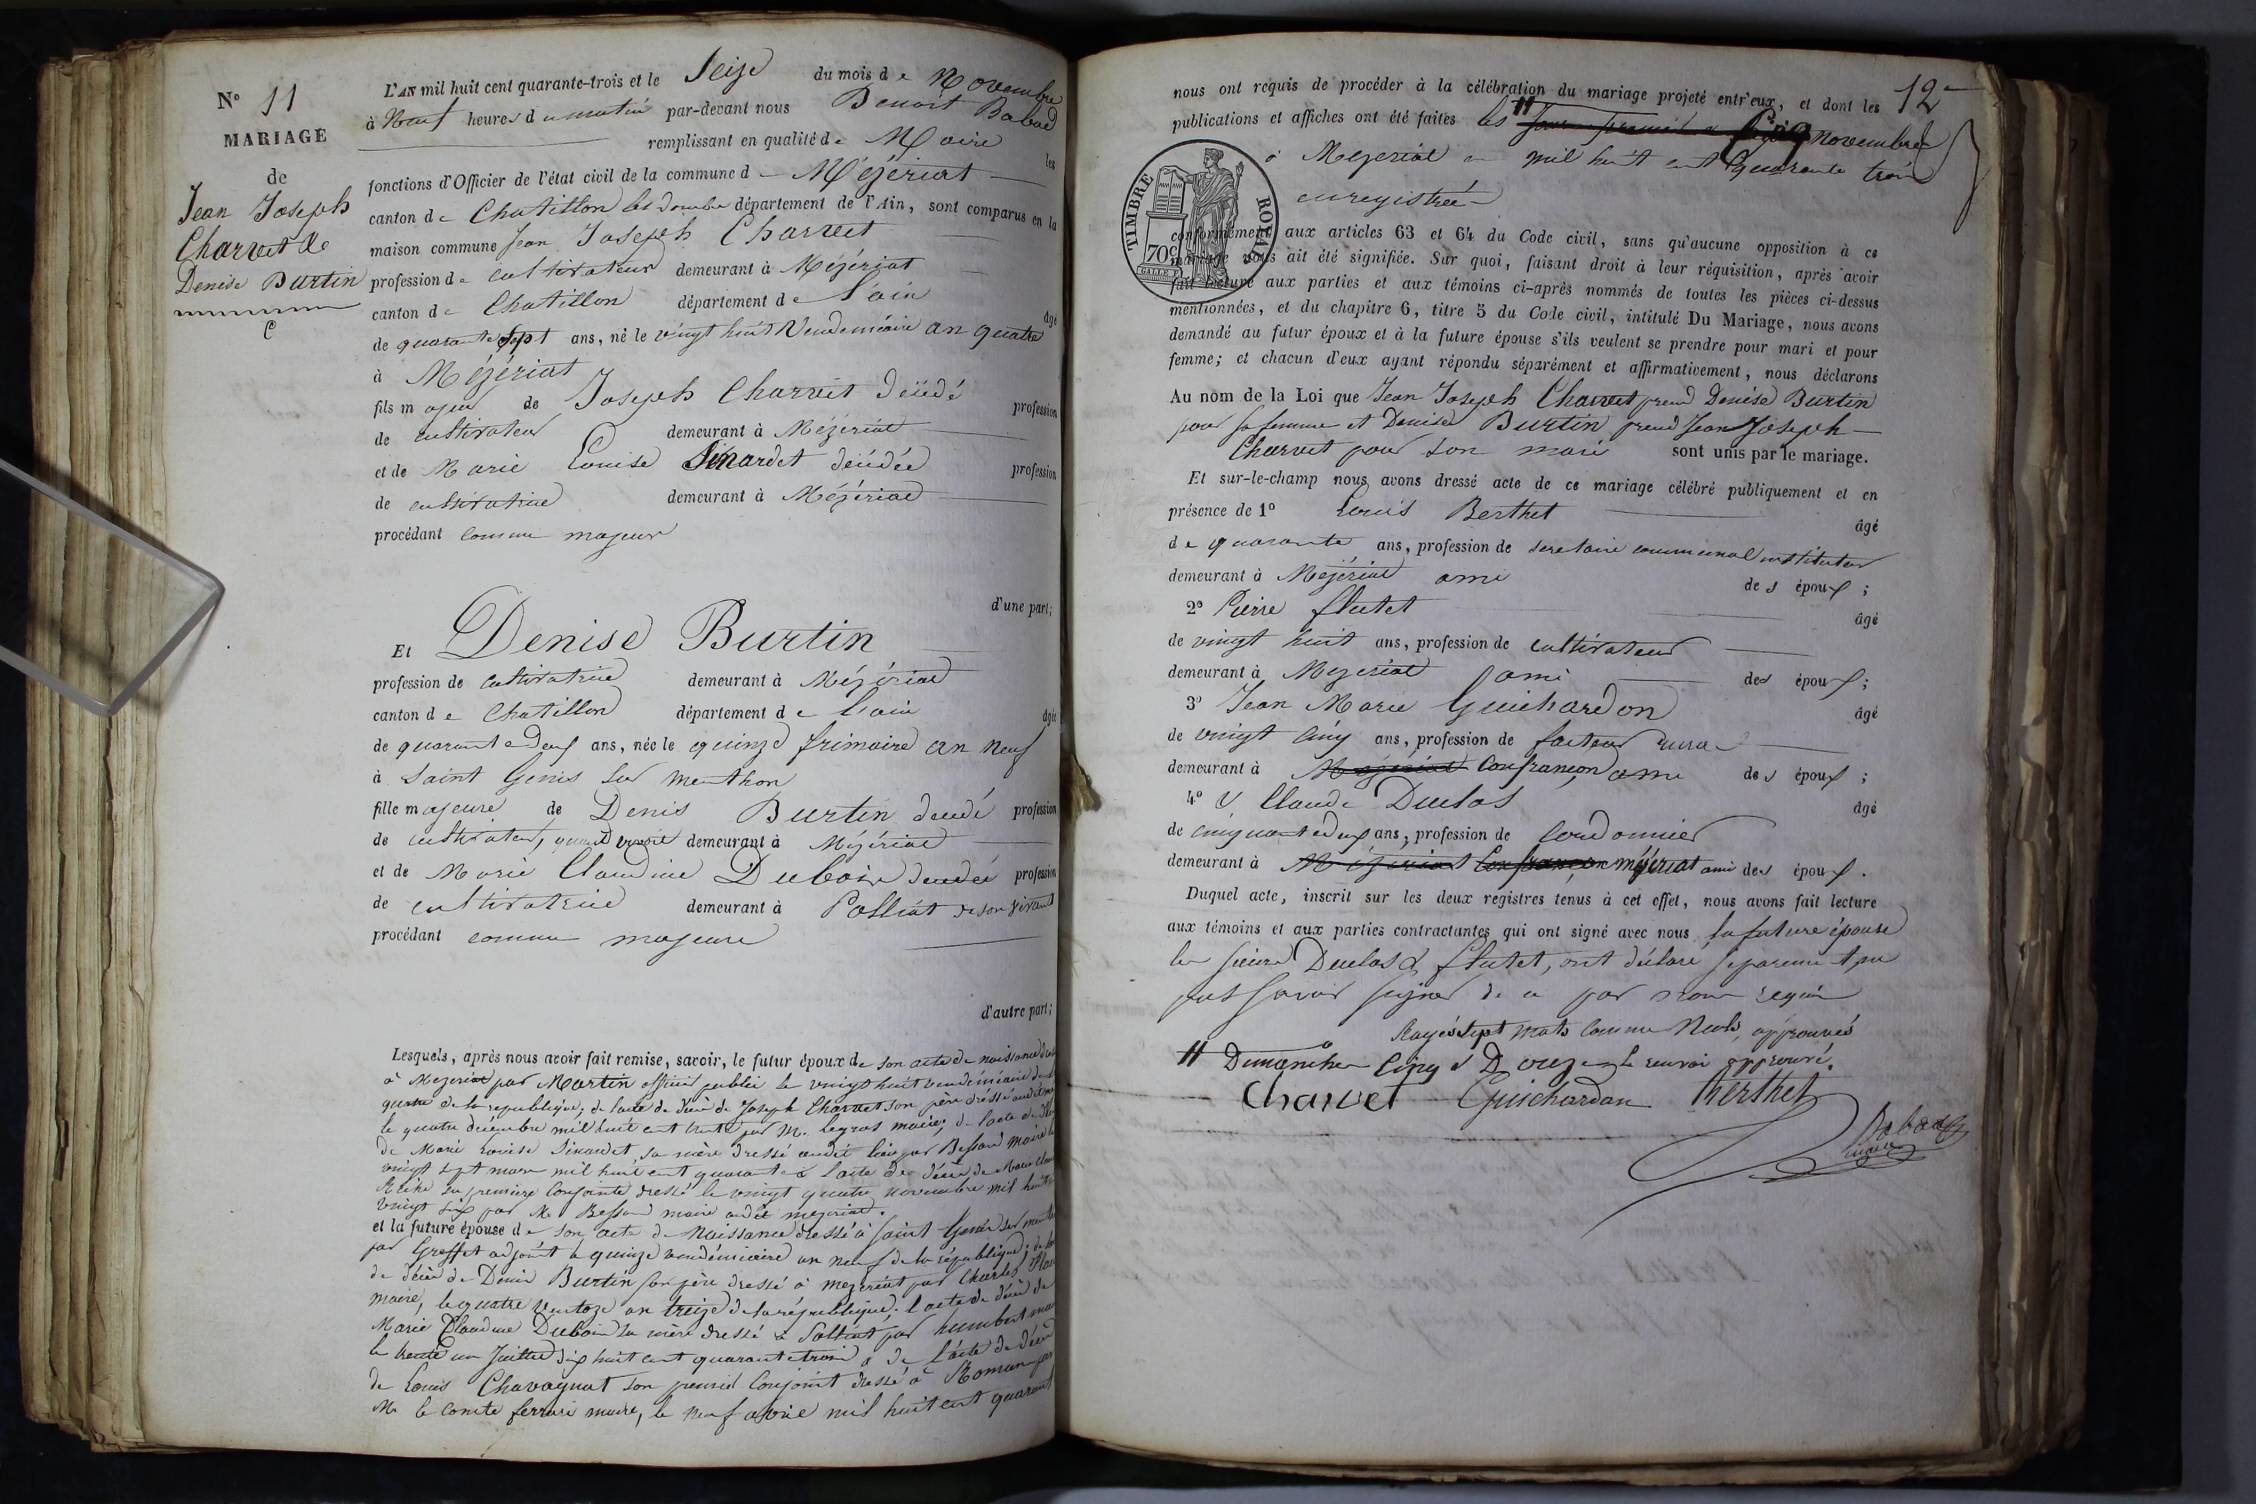 N° 11
MARIAGE
de
Jean Joseph
Charvet &
Denise Burtin
L'AN mil huit cent quarante-trois et le Seize du mois de Novembre
à Neuf heures du matin par-devant nous Benoit Babad
remplissant en qualité de Maire les
fonctions d'Officier de l'état civil de la commune de Mézériat
canton de Chatillon les Dombes département de l'Ain, sont comparus en la
maison commune Jean Joseph Charvet
profession de cultivateur demeurant à Mézériat
canton de Chatillon département de l'ain âgé
de quarante sept ans, né le vingt huit Vendémiaire an quatre
à Mézériat
fils majeur de Joseph Charvet décédé profession
de cultivateur demeurant à Mézériat
et de Marie Louise Sinardet décédée profession
de cultivatrice demeurant à Mézériat
procédant comme majeur
d'une part;
Et Denise Burtin
profession de cultivatrice demeurant à Mézériat
canton de Chatillon département de l'ain âgée
de quarante deux ans, née le quinze frimaire an neuf
à Saint Genis sur Menthon
fille majeure de Denis Burtin décédé profession
de cultivateur, quand vivait demeurant à Mézériat
et de Marie Claudine Dubois décédée profession
de cultivatrice demeurant à Polliat de son vivant
procédant comme majeure
d'autre part;
Lesquels, après nous avoir fait remise, savoir, le futur époux de son acte de naissance
à Mezeriat par Martin officier public le vingt huit vendémiaire
quatre de la republique; de l'acte de décès de Joseph Charvet son père dressé
le quatre decembre mil huit cent trente par M. Legras maire; de l'acte de
de Marie Louise Sinardet, sa mère dressé audit lieu par Besson maire le
vingt sept mars mil huit cent quarante & l'acte de décès de Marie
sa première conjointe dressé le vingt quatre novembre mil huit
vingt six par M. Besson maire audit mezeriat.
et la future épouse de son acte de Naissance dressé à Saint Genis sur
par Greffet adjoint le quinze vendémiaire an neuf de la république; de
de décès de Denis Burtin son père dressé à mezeriat par Charles
maire, le quatre Ventoze an treize de la république. l'acte de décès de
Marie Claudine Dubois sa mère dressé à Polliat par humbert
le trente un Juillet dix huit cent quarante trois & de l'acte de décès
de Louis Chavagnat son premier Conjoint dressé à Romans par
Mr le Comte ferrari maire, le neuf avril mil huit cent quarante
12
nous ont requis de procéder à la célébration du mariage projeté entr'eux, et dont les
publications et affiches ont été faites les novembre
à Mezeriat mil huit cent quarante trois
enregistrée
TIMBRE ROYAL
70c
conformément aux articles 63 et 64 du Code civil, sans qu'aucune opposition à ce
mariage nous ait été signifiée. Sur quoi, faisant droit à leur réquisition, après avoir
fait lecture aux parties et aux témoins ci-après nommés de toutes les pièces ci-dessus
mentionnées, et du chapitre 6, titre 5 du Code civil, intitulé Du Mariage, nous avons
demandé au futur époux et à la future épouse s'ils veulent se prendre pour mari et pour
femme; et chacun d'eux ayant répondu séparément et affirmativement, nous déclarons
Au nom de la Loi que Jean Joseph Charvet prend Denise Burtin
pour sa femme et Denise Burtin prend Jean Joseph
Charvet pour son mari sont unis par le mariage.
Et sur-le-champ nous avons dressé acte de ce mariage célébré publiquement et en
présence de 1° Louis Berthet âgé
de quarante ans, profession de secretaire communal instituteur
demeurant à Mézériat ami des époux;
2° Pierre flutet âgé
de vingt huit ans, profession de cultivateur
demeurant à Mezeriat ami des époux;
3° Jean Marie Guichardon âgé
de vingt cinq ans, profession de facteur rural
demeurant à Mézériat Confrançon ami des époux;
4° & Claude Duclos âgé
de cinquante deux ans, profession de Cordonnier
demeurant à Mézériat Confrançon mézériat ami des époux.
Duquel acte, inscrit sur les deux registres tenus à cet effet, nous avons fait lecture
aux témoins et aux parties contractantes qui ont signé avec nous la future épouse
les sieurs Duclos & flutet, ont déclaré séparement ne
pas savoir signer de ce par nous requis
Rayés sept mots comme Nuls, approuvés
Dimanches Cinq & Douze le renvoi approuvé.
Charvet Guichardon Berthet
Babad
maire